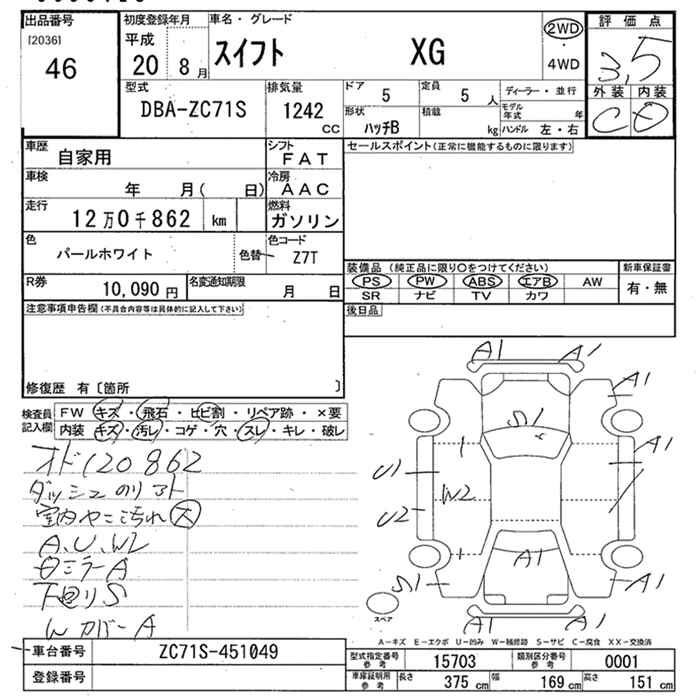 出品番号
[2036]
46
初度登録年月
平成
20 8 月
車名・グレード
スイフト XG
2WD
・
4WD
評価点
3,5
外装 内装
C D
型式
DBA-ZC71S
排気量
1242
CC
ドア
5
定員
5 人
ディーラー・並行
モデル年式 年
形状
ハッチB
積載
kg
ハンドル 左・右
車歴
自家用
シフト
FAT
セールスポイント(正常に機能するものに限ります)
車検
年 月( 日)
冷房
AAC
走行
12万0千862 km
燃料
ガソリン
色
パールホワイト
色替
色コード
Z7T
R券
10,090 円
名変通知期限
月 日
装備品 (純正品に限り○をつけてください)
PS PW ABS エアB AW
SR ナビ TV カワ
新車保証書
有・無
後日品
注意事項申告欄(不具合内容等は具体的に記入して下さい)
修復歴 有〔箇所 〕
検査員記入欄
FW キズ・飛石・ヒビ割・リペア跡・×要
内装 キズ・汚レ・コゲ・穴・スレ・キレ・破レ
オド120862
ダッシュのリアト
室内ヤニ汚れ大
A、U、W2
日ミラーA
下回りS
Wカバー A
A1 A1
A1
S1
A1
U1
W2
U2
A1
S1
A1
A1 A1
スペア
A-キズ E-エクボ U-凹み W-補修跡 S-サビ C-腐食 XX-交換済
車台番号
ZC71S-451049
登録番号
型式指定番号
参考
15703
類別区分番号
参考
0001
車庫証明用
参考
長さ
375 cm
幅
169 cm
高さ
151 cm